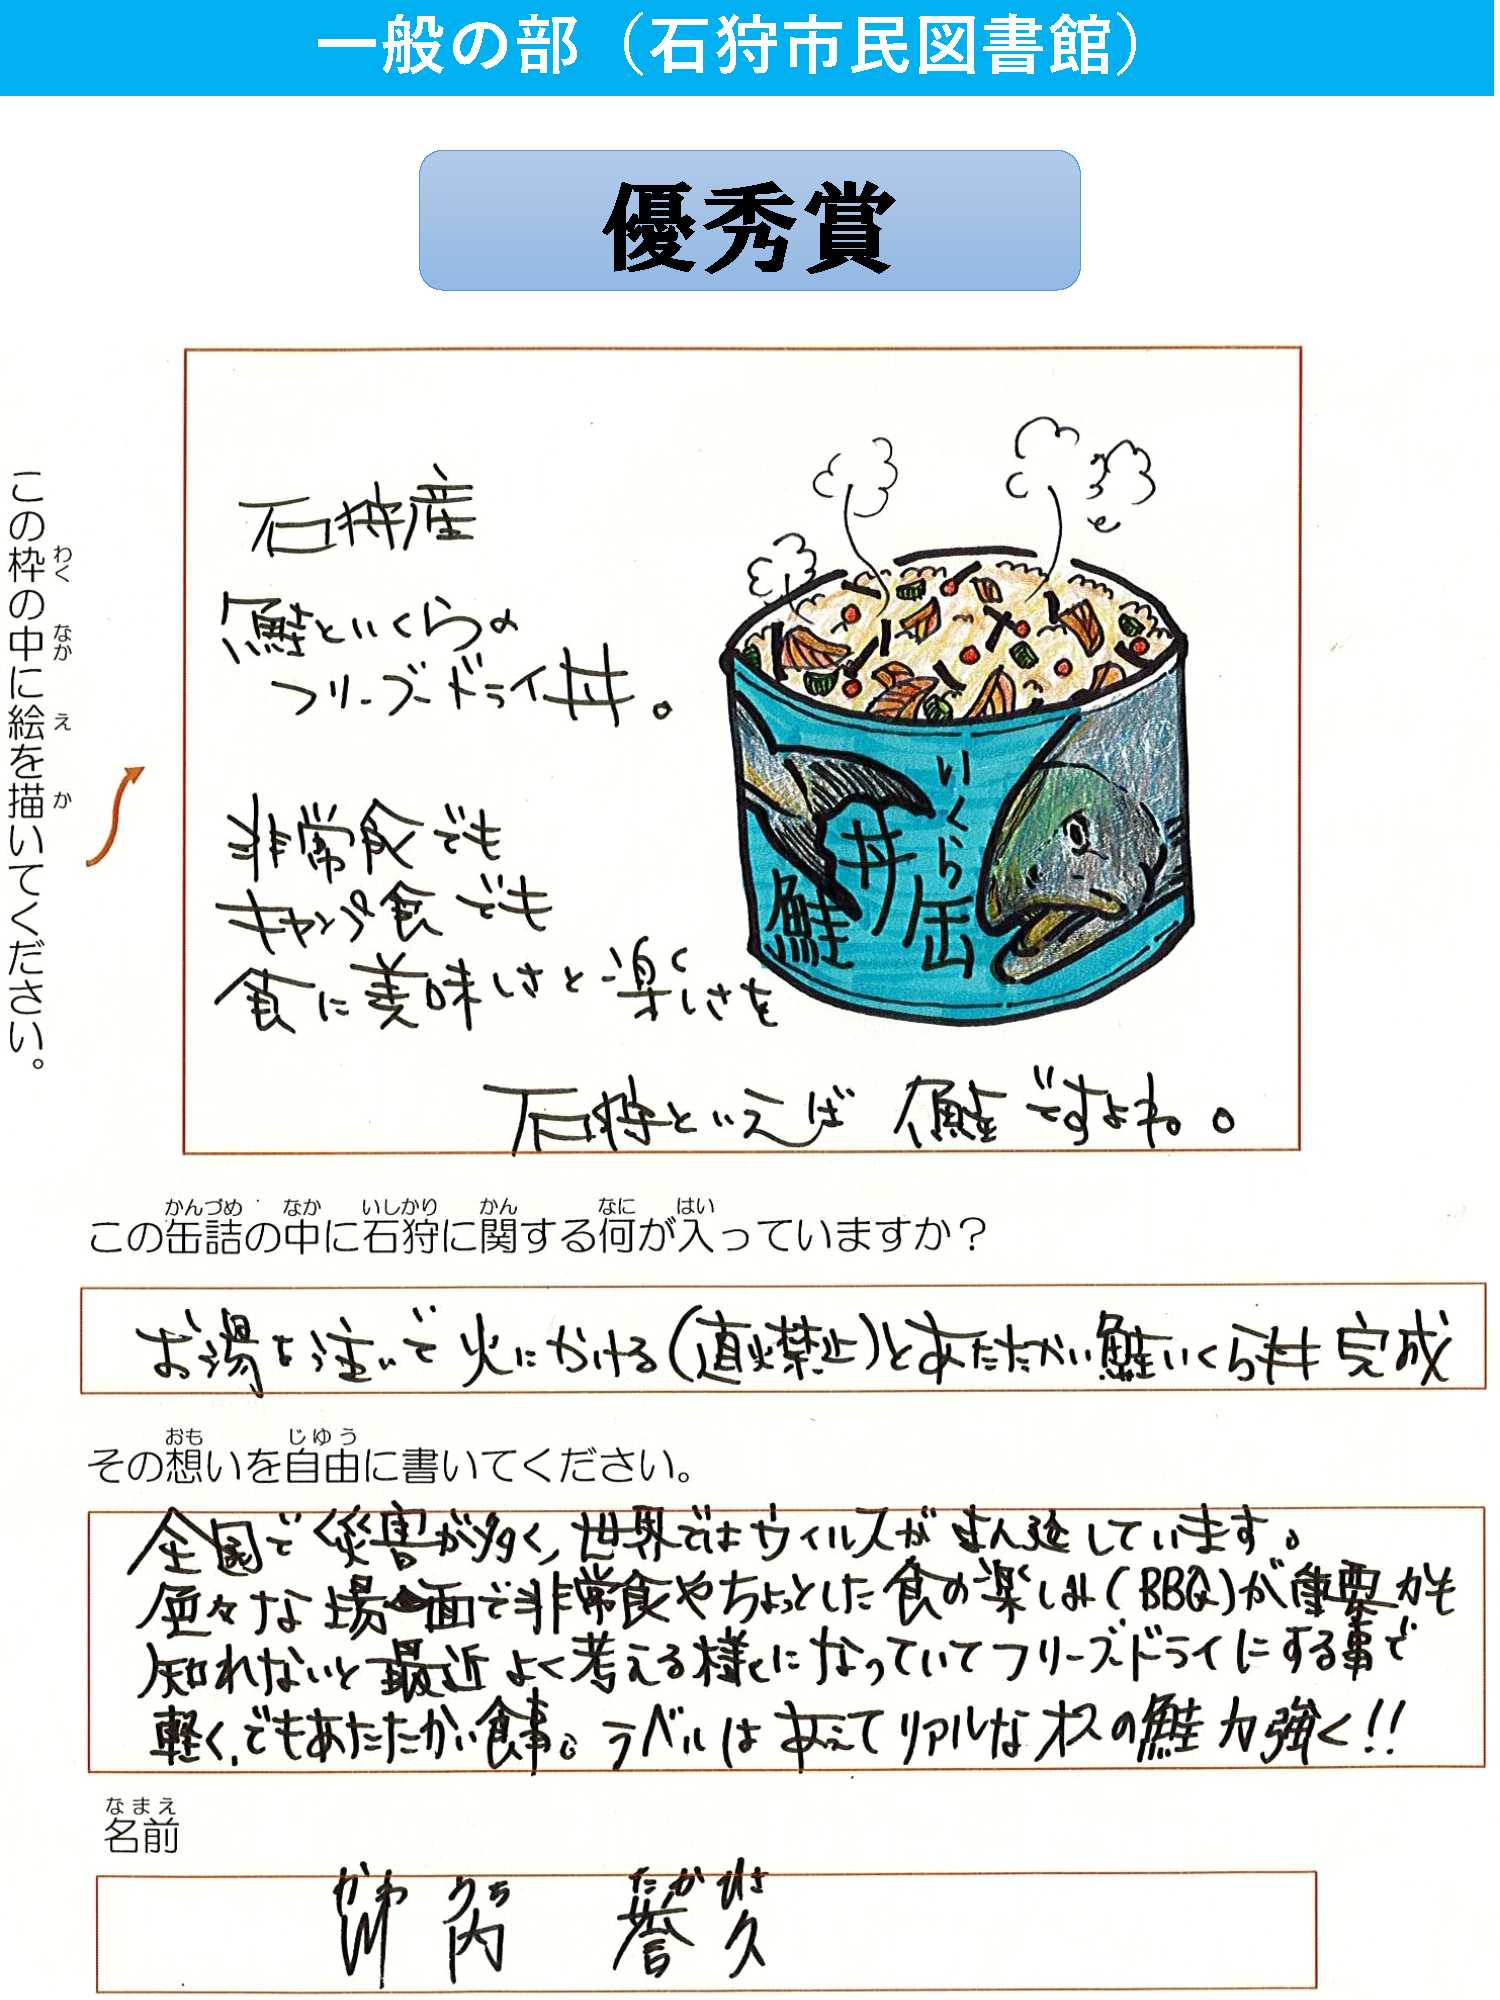 一般の部（石狩市民図書館）
優秀賞
この枠の中に絵を描いてください。
わく
なか
え
か
石狩産
鮭といくらの
フリーズドライ丼。
非常食でも
キャンプ食でも
食に美味しさと楽しさを
石狩といえば 鮭ですよね。
鮭
いくら
丼缶
かんづめ なか いしかり かん なに はい
この缶詰の中に石狩に関する何が入っていますか？
お湯を注いで火にかける(直火禁止)とあたたかい鮭いくら丼完成
おも じゆう
その想いを自由に書いてください。
全国で災害が多く、世界ではウィルスがまん延しています。
色々な場面で非常食やちょっとした食の楽しみ(BBQ)が重要かも
知れないと最近よく考える様になっていてフリーズドライにする事で
軽く、でもあたたかい食事。ラベルはあえてリアルなオスの鮭力強く!!
なまえ
名前
かわ うち たか ひさ
川 内 誉 久